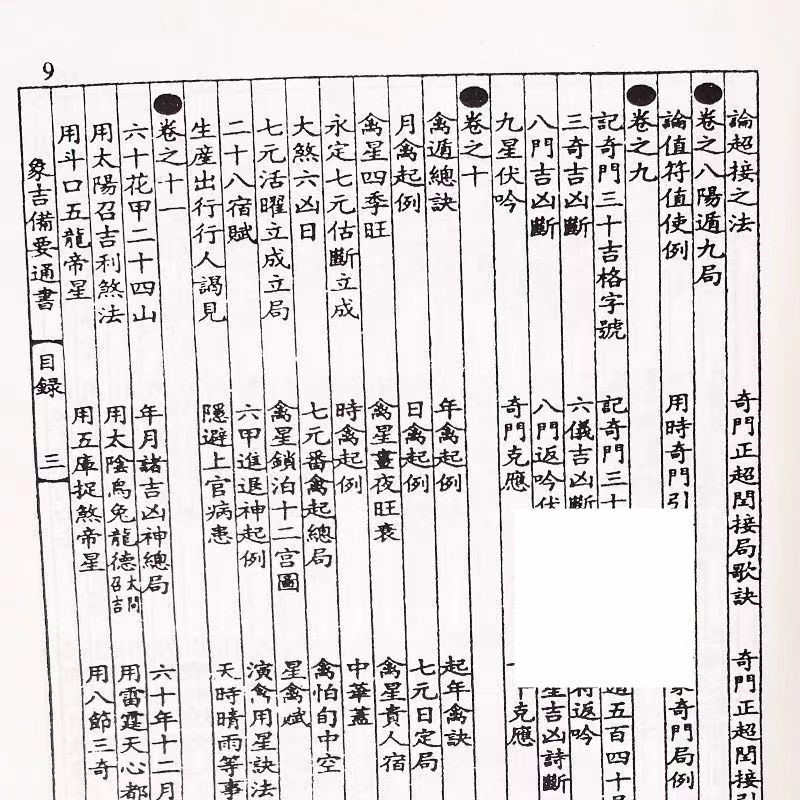 9
論超接之法　奇門正超閏接局歌訣　奇門正超閏接
卷之八陽遁九局
論值符值使例　用時奇門引　奇門局例
卷之九
記奇門三十吉格字號　記奇門三十　五百四十
三奇吉凶斷　六儀吉凶斷　返吟
八門吉凶斷　八門返吟伏　星吉凶詩斷
九星伏吟　奇門克應　克應
卷之十
禽遁總訣　年禽起例　起年禽訣
月禽起例　日禽起例　七元日定局
禽星四季旺　禽星晝夜旺衰　禽星貴人宿
永定七元估斷立成　時禽起例　中華蓋
大煞六凶日　七元番禽起總局　禽怕旬中空
七元活曜立成立局　禽星鎖泊十二宮圖　星禽賦
二十八宿賦　六甲進退神起例　演禽用星訣法
生產出行行人謁見　隱避上官病患　天時晴雨等事
卷之十一
六十花甲二十四山　年月諸吉凶神總局　六十年十二月
用太陽召吉利煞法　用太陰烏兔龍德太陽召吉　用雷霆天心都
用斗口五龍帝星　用五庫捉煞帝星　用八節三奇
象吉備要通書　目錄　三